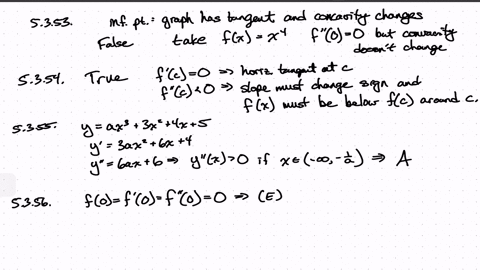 5.3.53. inf. pt.: graph has tangent and concavity changes
False take f(x) = x⁴ f"(0)=0 but concavity doesn't change
5.3.54. True f'(c)=0 ⇒ horiz tangent at c
f"(c)<0 ⇒ slope must change sign and
f(x) must be below f(c) around c.
5.3.55. y=ax³+3x²+4x+5
y'=3ax²+6x+4
y"=6ax+6 ⇒ y"(x)>0 if x∈(-∞,-1/a) ⇒ A
5.3.56. f(0)=f'(0)=f"(0)=0 ⇒ (E)